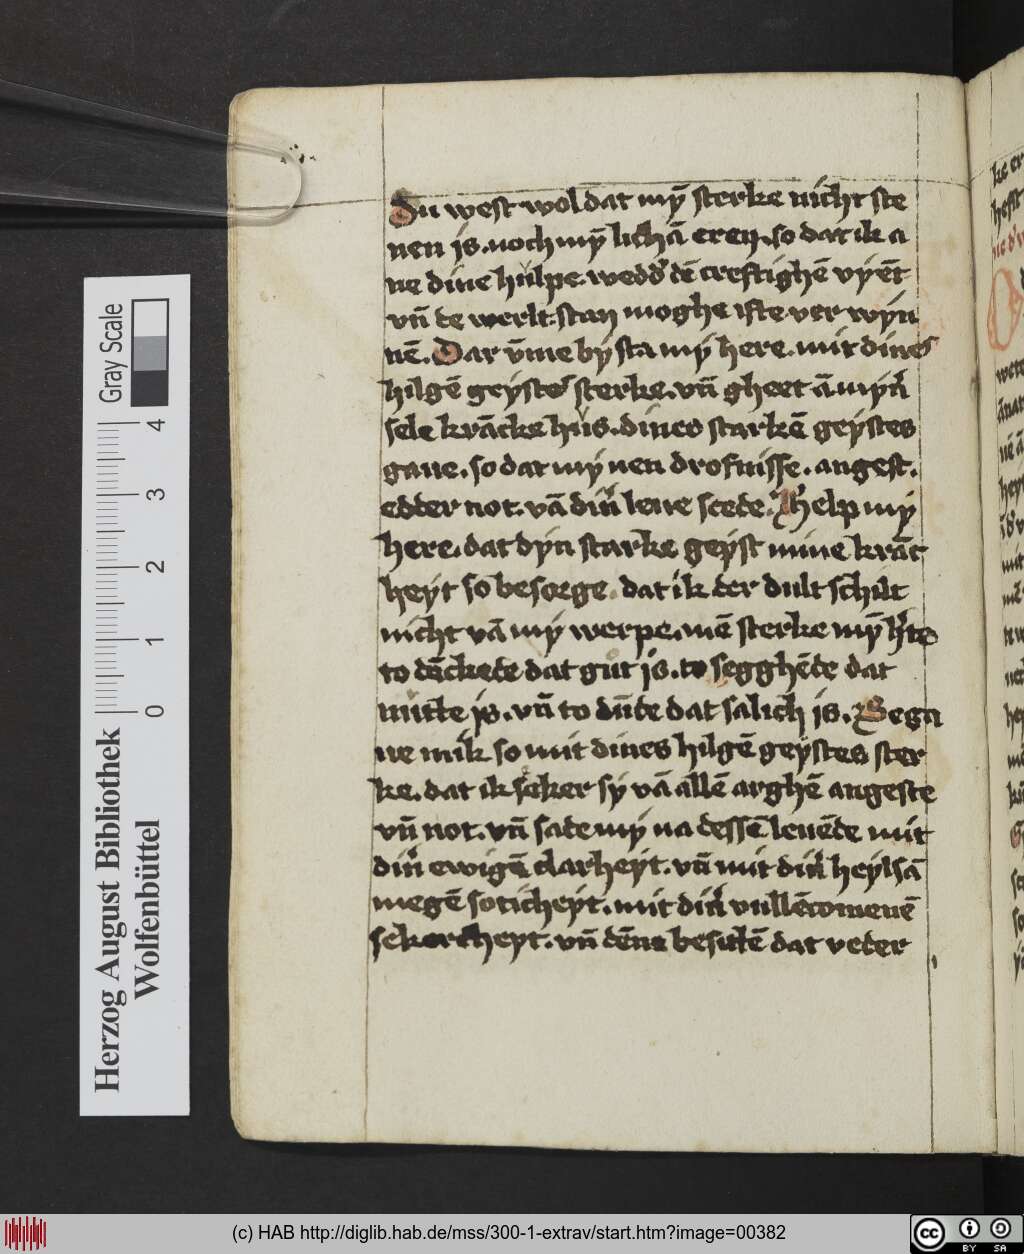 Du west wol dat mȳ sterke nicht ste
nen is. noch mȳ lichā eren. so dat ik a
ne dine hulpe. wedd' dē creftighē vyēt
vn̄ de werlt. stan moghe ifte vor wyn
nē. Dar v̄me by sta my here. mit dines
hilgē geystes sterke. vn̄ gheet ā myn'
sele krācke hus. dines starkē geystes
gaue. so dat my nen drofnisse. angest.
edder not. vā din' leue scede. Help my
here. dat dyn starke geyst mine krāc
heyt so besorge. dat ik der dult schilt
nicht vā my werpe. mē sterke mȳ h'te
to dēckede dat gut is. to segghēde dat
nutte is. vn̄ to dūde dat salich is. Sega
ne mik so mit dines hilgē geystes ster
ke. dat ik seker sy vā allē arghē angeste
vn̄ not. vn̄ sade my na dessē leuēde mit
din' ewigē clarheyt. vn̄ mit din' heylsā
megē soticheyt. mit din' vullēcomenē
sekercheyt. vn̄ dēne besutē dat veder
Gray Scale
4
3
2
1
0
Herzog August Bibliothek
Wolfenbüttel
(c) HAB http://diglib.hab.de/mss/300-1-extrav/start.htm?image=00382
cc BY SA